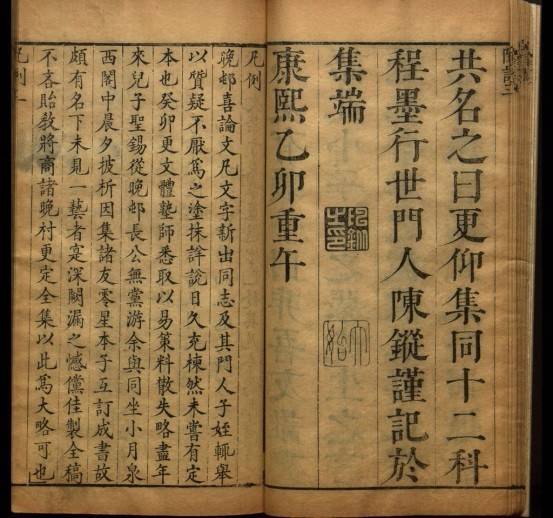 共名之曰更仰集同十二科
程墨行世門人陳鏦謹記於
集端
康熙乙卯重午
凡例
晚邨喜論文凡文字新出同志及其門人子姪輒舉
以質疑不厭爲之塗抹詳說日久充棟然未嘗有定
本也癸卯更文體塾師悉取以易策料散失略盡年
來兒子聖錫從晚邨長公無黨游余與同坐小月泉
西閣中晨夕披析因集諸友零星本子互訂成書故
頗有名下未見一藝者寔深闕漏之憾儻佳製全稿
不吝貽教將商諸晚村更定全集以此爲大略可也